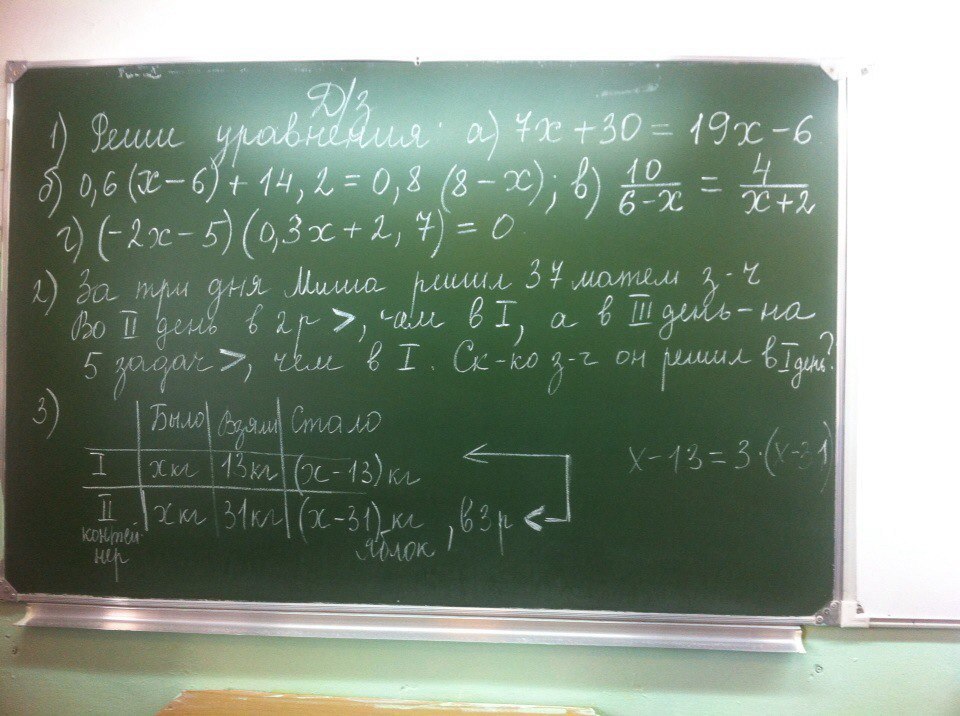 Д/з
1) Реши уравнения: а) 7x + 30 = 19x - 6
б) 0,6 (x - 6) + 14,2 = 0,8 (8 - x); в) 10/(6-x) = 4/(x+2)
г) (-2x - 5) (0,3x + 2,7) = 0
2) За три дня Миша решил 37 матем з-ч
Во II день в 2 р >, чем в I, а в III день - на
5 задач >, чем в I. Ск-ко з-ч он решил в I день?
3)
Было Взяли Стало
I x кг 13 кг (x - 13) кг x - 13 = 3 · (x - 31)
II x кг 31 кг (x - 31) кг , в 3 р <
контей яблок
нер